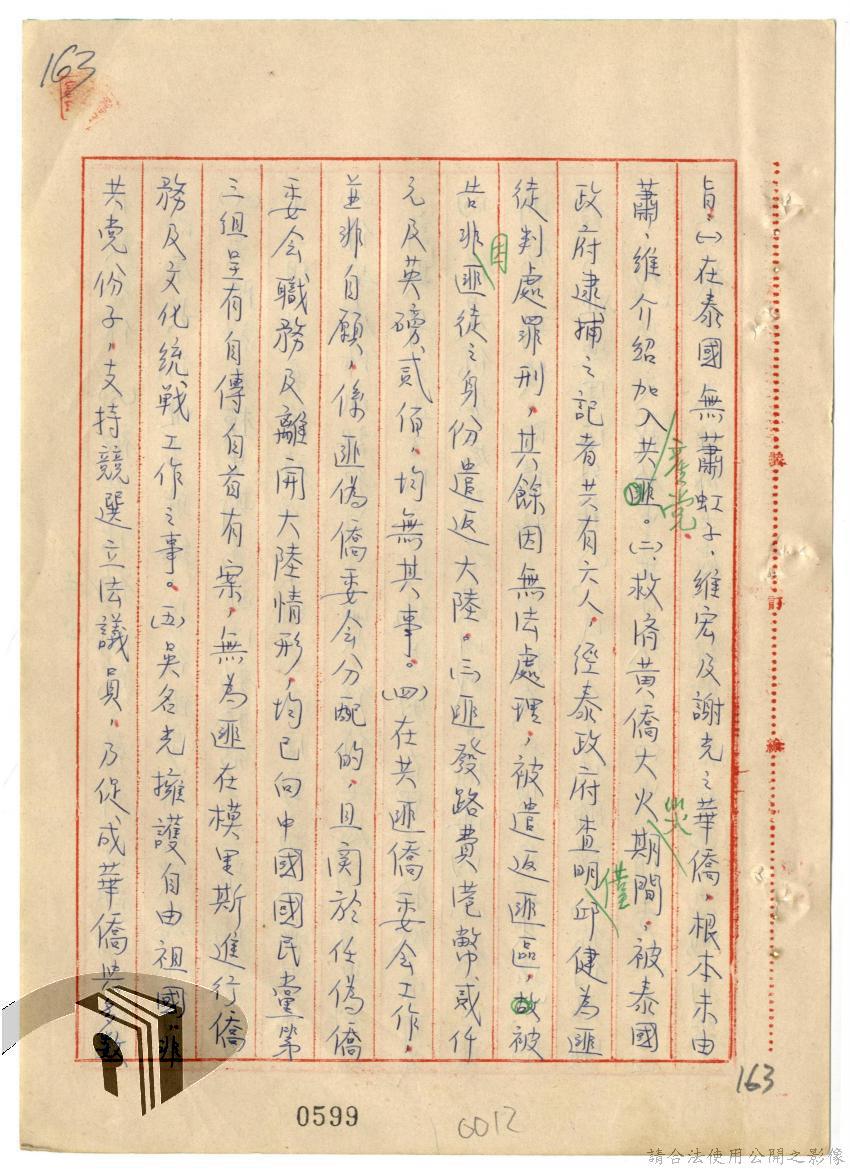 163
旨、㈠在泰國無蕭虹子、維宏及謝光之華僑，根本未由
蕭、維介紹加入共匪。㈡救濟黃僑大火期間，被泰國
產党
災
政府逮捕之記者共有六人，經泰政府查明邱健為匪
僅
徒判處罪刑，其餘因無法處理，被遣返匪區，故被
告非匪徒之身份遣返大陸。㈢匪發路費港幣貳仟
因
元及英磅貳佰，均無其事。㈣在共匪僑委会工作，
並非自願，係匪偽僑委会分配的，且関於任偽僑
委会職務及離開大陸情形，均已向中國國民黨第
三組呈有自傳自首有案，無為匪在模里斯進行僑
務及文化統戰工作之事。㈤吳名光擁護自由祖國，非
共党份子，支持競選立法議員，乃促成華僑
163
0599
0012
裝
訂
線
請合法使用公開之影像